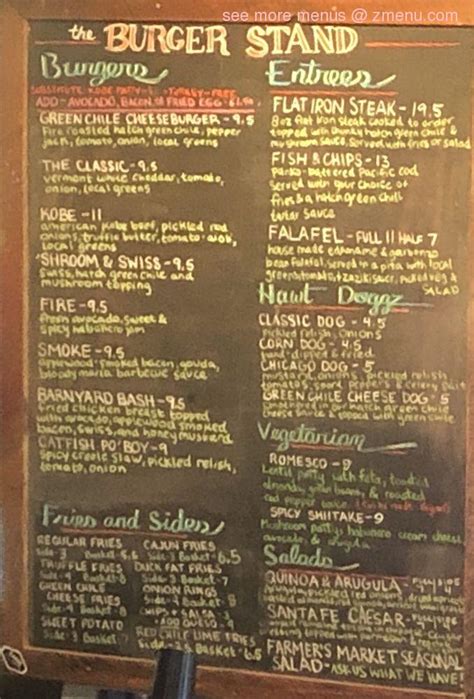 see more menus @ zmenu.com
the BURGER STAND
Burgers
ADD - AVOCADO, BACON, or FRIED EGG
GREEN CHILE CHEESEBURGER - 9.5
fire roasted hatch green chile, pepper
jack, tomato, onion, local greens
THE CLASSIC - 9.5
vermont white cheddar, tomato,
onion, local greens
KOBE - 11
american kobe beef, pickled red
onions, truffle butter, tomato
local greens
'SHROOM & SWISS - 9.5
swiss, hatch green chile and
mushroom topping
FIRE - 9.5
fresh avocado, sweet &
spicy habanero jam
SMOKE - 9.5
applewood smoked bacon, gouda,
bloody maria barbecue sauce
BARNYARD BASH - 9.5
fried chicken breast topped
with avocado, applewood smoked
bacon, swiss, and honey mustard
CATFISH PO'BOY - 9
spicy creole slaw, pickled relish,
tomato, onion
Fries and Sides
REGULAR FRIES
Side - 3 Basket - 5.5
TRUFFLE FRIES
Side - 4 Basket - 8
GREEN CHILE
CHEESE FRIES
Side - 4 Basket - 8
SWEET POTATO
Side - 3 Basket - 7
CAJUN FRIES
Side - 3 Basket - 6.5
DUCK FAT FRIES
Side - 3 Basket - 7
ONION RINGS
Side - 4 Basket - 8
CHIPS & SALSA - 4
ADD QUESO - 4
RED CHILE LIME FRIES
Basket - 6.5
Entrees
FLAT IRON STEAK - 19.5
8oz flat iron steak cooked to order
topped with hatch green chile &
mushroom sauce, served with fries or salad
FISH & CHIPS - 13
Panko-battered Pacific cod
served with your choice of
fries & a hatch green chili
tarter sauce
FALAFEL - FULL 11 HALF 7
house made edamame & garbonzo
bean falafel, served in a pita with local
greens, tomato, tzatziki sauce, pickled veg &
SALAD
Hawt Doggz
CLASSIC DOG - 4.5
pickled relish, onions
CORN DOG - 4.5
hand-dipped & fried
CHICAGO DOG - 5
mustard, onions, pickled relish
tomatoes, sport peppers & celery salt
GREEN CHILE CHEESE DOG - 5
smothered in our hatch green chile
cheese sauce & topped with
Vegetarian
ROMESCO - 9
Lentil patty with feta, toasted
almonds, green beans, & roasted
red pepper sauce
SPICY SHIITAKE - 9
Mushroom patty, habanero cream cheese,
avocado & arugula
Salads
QUINOA & ARUGULA -
SANTA FE CAESAR -
FARMER'S MARKET SEASONAL
SALAD - ASK US WHAT WE HAVE!